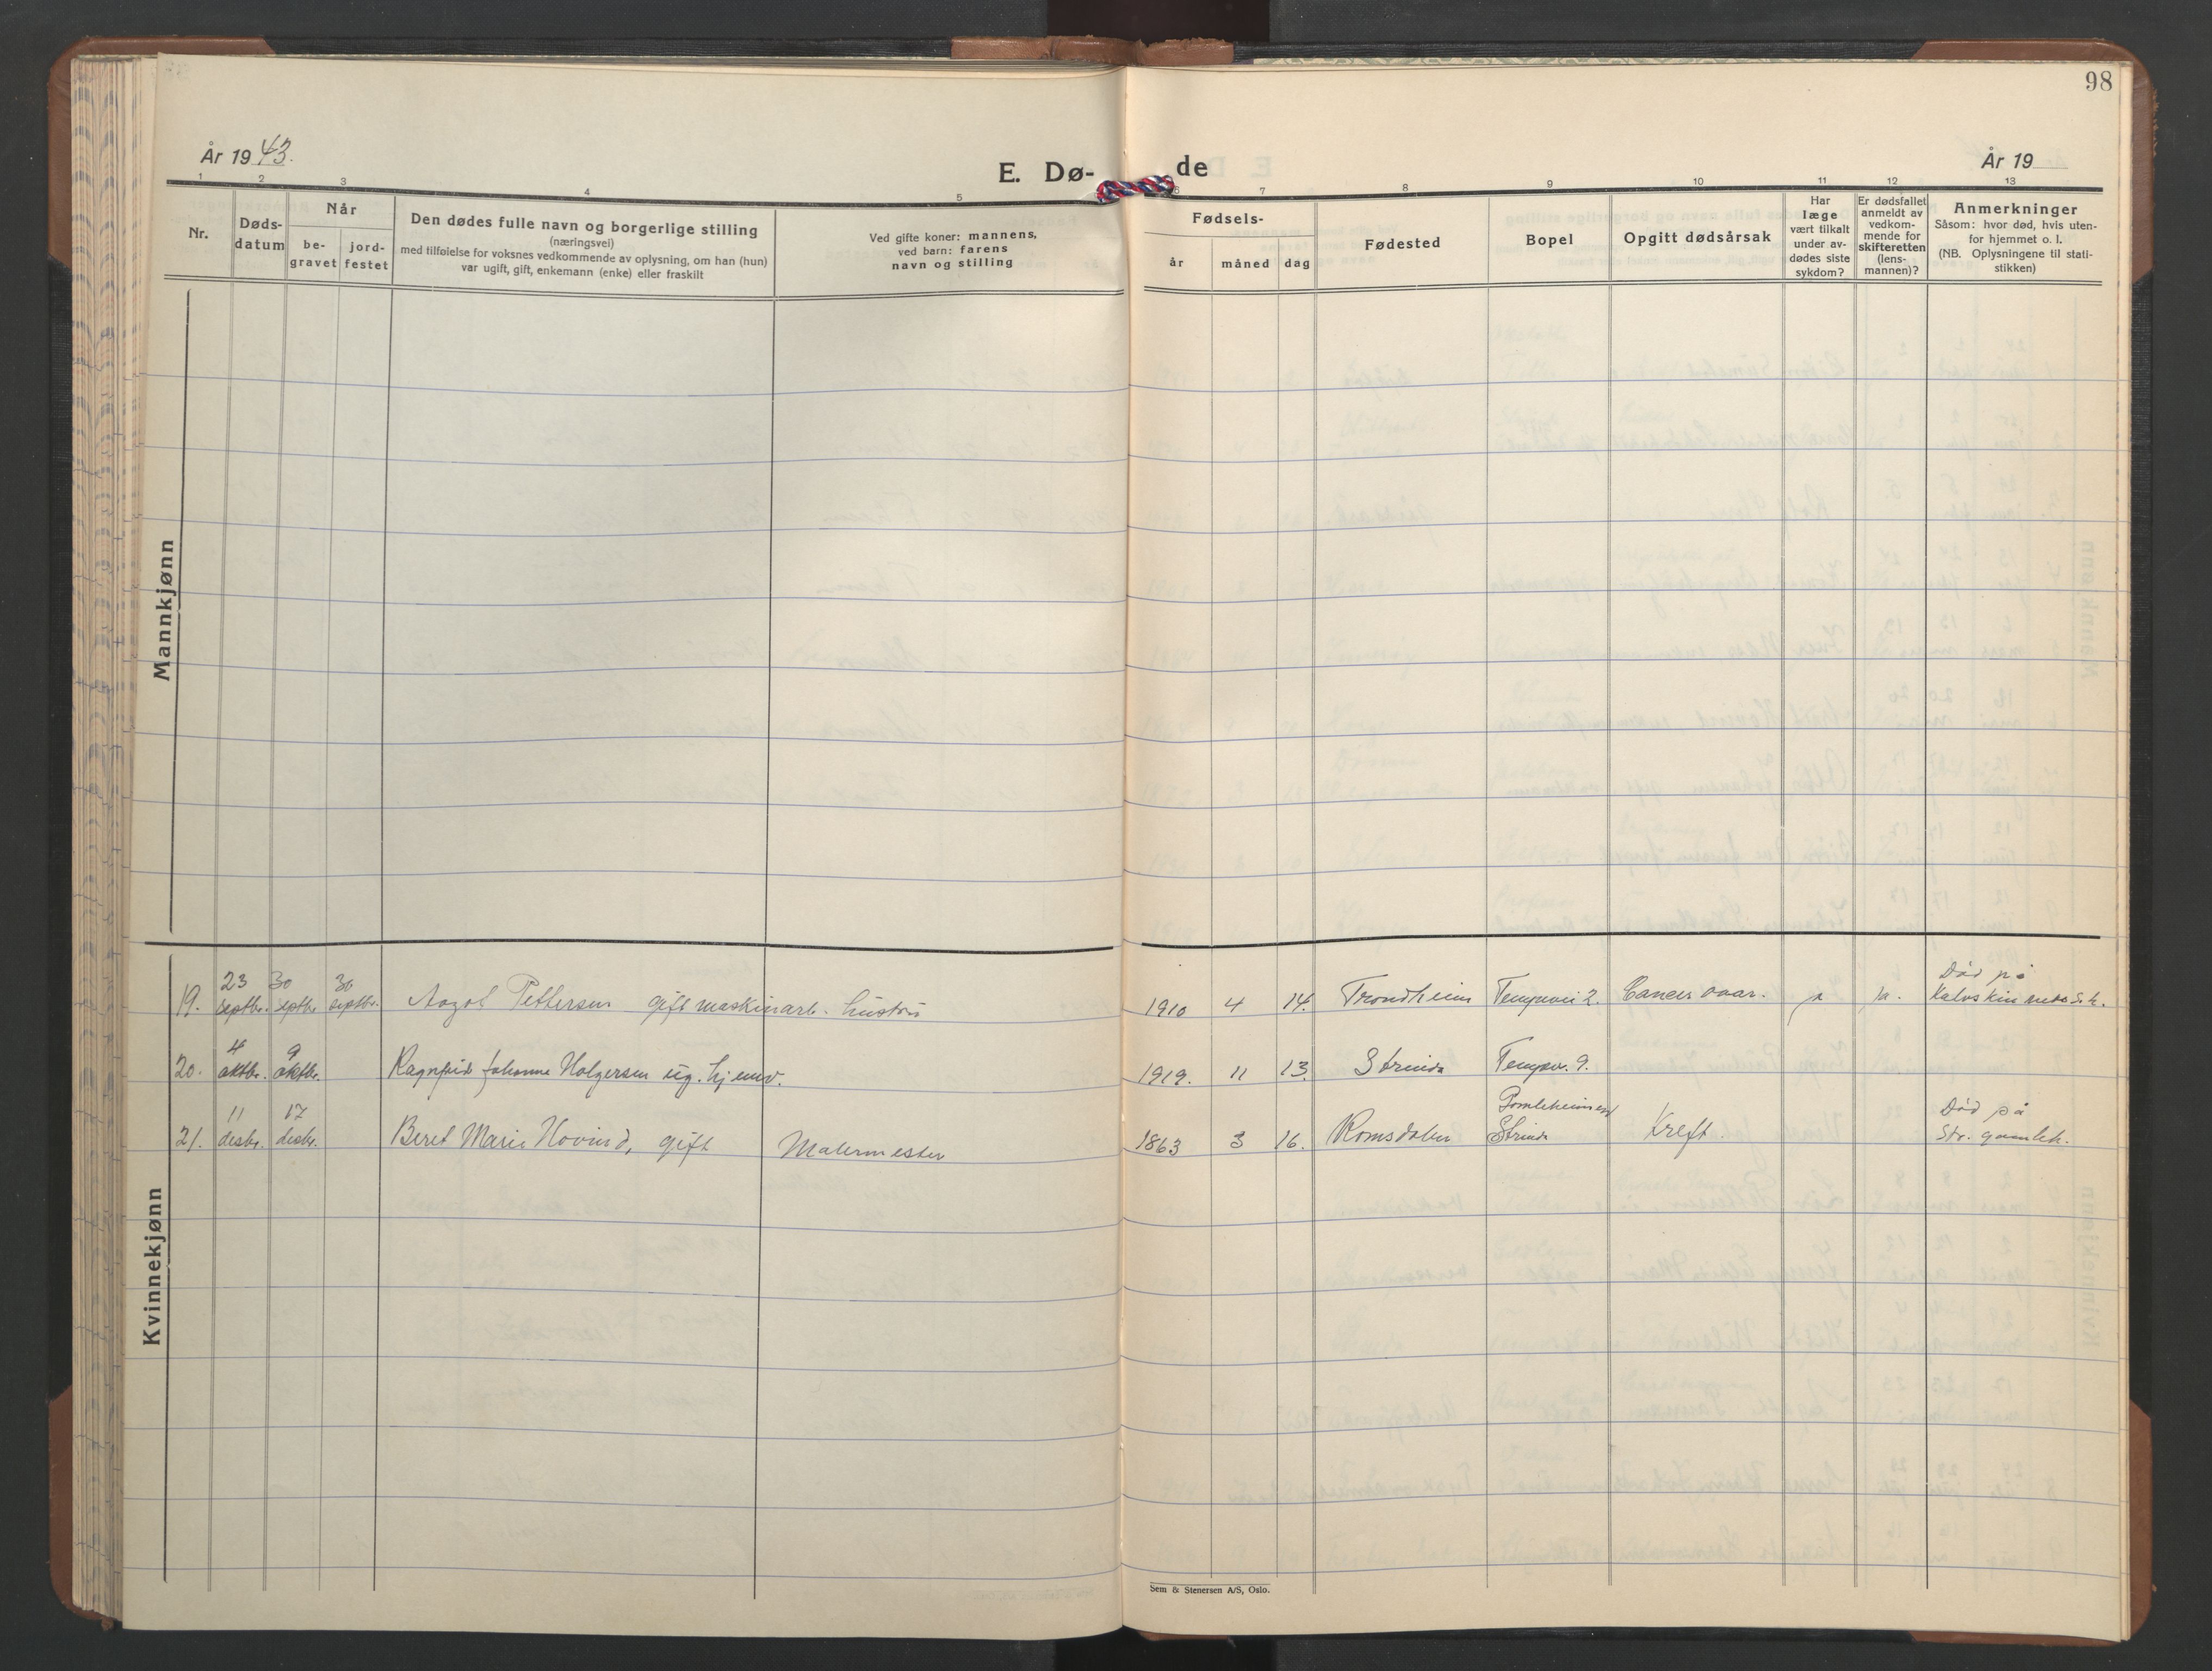 98
År 1943.
E. Dø-
de
År 19
1 2 3 4 5 6 7 8 9 10 11 12 13
Nr.
Døds-
datum
Når
be-
gravet
jord-
festet
Den dødes fulle navn og borgerlige stilling
(næringsvei)
med tilføielse for voksnes vedkommende av oplysning, om han (hun)
var ugift, gift, enkemann (enke) eller fraskilt
Ved gifte koner: mannens,
ved barn: farens
navn og stilling
Fødsels-
år
måned
dag
Fødested
Bopel
Opgitt dødsårsak
Har
læge
vært tilkalt
under av-
dødes siste
sykdom?
Er dødsfallet
anmeldt av
vedkom-
mende for
skifteretten
(lens-
mannen)?
Anmerkninger
Såsom: hvor død, hvis uten-
for hjemmet o. l.
(NB. Oplysningene til stati-
stikken)
Mannkjønn
Kvinnekjønn
19. 23 septbr. 30 septbr. 30 septbr. Aagot Pettersen gift maskinarb. hustru 1910 4 14. Trondheim Tempevei 2. Cancer ovar. ja ja. Död på
20. 4 oktbr. 9 oktbr. Ragnfrid Johanne Holgersen ug. hj 1919. 11 13. Strinda Tempev. 9.
21. 11 desbr. 17 desbr. Beret Marie Hovind, gift Malermester 1863 3 16. Romsdalen Strinda Kreft. Död på
Str. gamleh.
Sem & Stenersen A/S, Oslo.